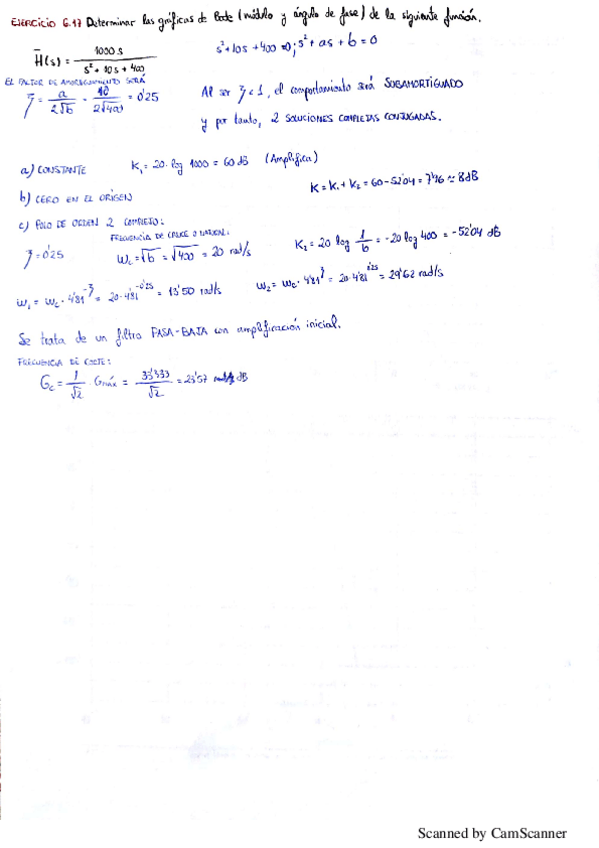 EJERCICIO 6.17 Determinar las gráficas de Bode (módulo y ángulo de fase) de la siguiente función.
H(s) = 1000 s / s² + 10 s + 400
s² + 10s + 400 = 0; s² + as + b = 0
EL FACTOR DE AMORTIGUAMIENTO SERÁ
ζ = a / 2√b = 10 / 2√400 = 0'25
Al ser ζ < 1, el comportamiento será SUBAMORTIGUADO
y por tanto, 2 SOLUCIONES COMPLEJAS CONJUGADAS.
a) CONSTANTE K₁ = 20 · log 1000 = 60 dB (Amplifica)
K = K₁ + K₂ = 60 - 52'04 = 7'96 ≈ 8 dB
b) CERO EN EL ORIGEN
c) POLO DE ORDEN 2 COMPLEJO:
FRECUENCIA DE CRUCE O NATURAL:
ζ = 0'25 ωc = √b = √400 = 20 rad/s
K₂ = 20 log 1/b = -20 log 400 = -52'04 dB
ω₁ = ωc · 4'81^-ζ = 20 · 4'81^-0'25 = 13'50 rad/s
ω₂ = ωc · 4'81^ζ = 20 · 4'81^0'25 = 29'62 rad/s
Se trata de un filtro PASA-BAJA con amplificación inicial.
FRECUENCIA DE CORTE:
Gc = 1/√2 · Gmáx = 33'333/√2 = 23'57 dB
Scanned by CamScanner